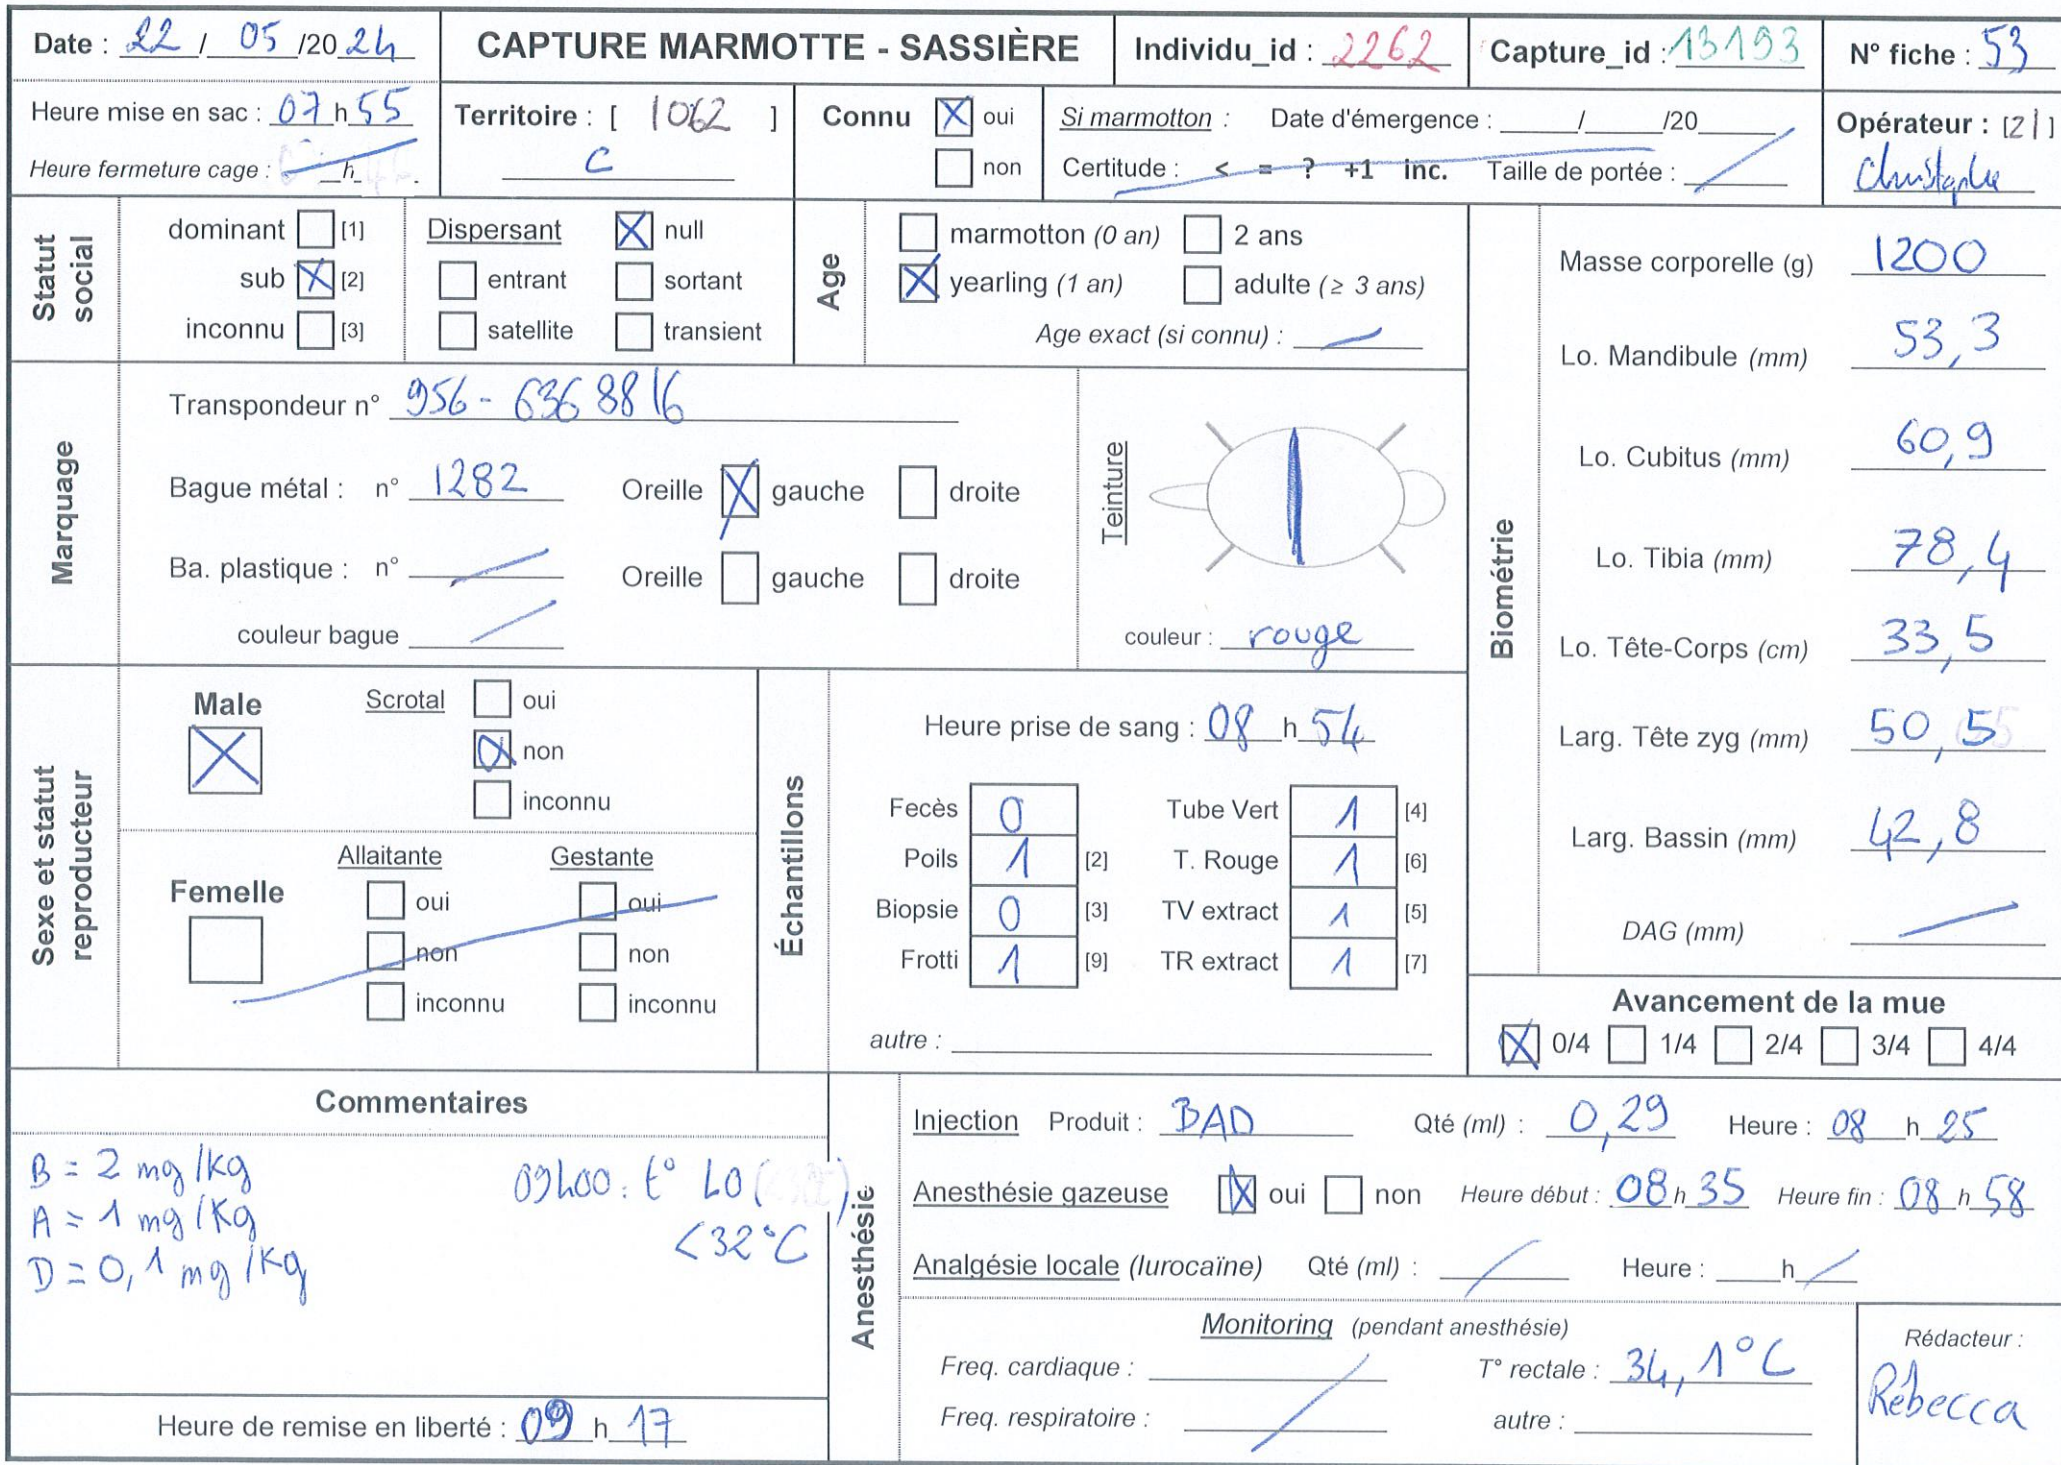 Date : 22 / 05 /20 24
CAPTURE MARMOTTE - SASSIÈRE
Individu_id : 2262
Capture_id : 13193
N° fiche : 53
Heure mise en sac : 07 h 55
Heure fermeture cage : h
Territoire : [ 1062 ]
C
Connu
oui
non
Si marmotton : Date d'émergence : / /20
Certitude : < = ? +1 inc. Taille de portée :
Opérateur : [21]
Christophe
Statut social
dominant [1]
sub [2]
inconnu [3]
Dispersant
null
entrant
sortant
satellite
transient
Age
marmotton (0 an)
2 ans
yearling (1 an)
adulte (≥ 3 ans)
Age exact (si connu) :
Marquage
Transpondeur n° 956-6368816
Bague métal : n° 1282 Oreille gauche droite
Ba. plastique : n° Oreille gauche droite
couleur bague
Teinture
couleur : rouge
Biométrie
Masse corporelle (g) 1200
Lo. Mandibule (mm) 53,3
Lo. Cubitus (mm) 60,9
Lo. Tibia (mm) 78,4
Lo. Tête-Corps (cm) 33,5
Larg. Tête zyg (mm) 50,5
Larg. Bassin (mm) 42,8
DAG (mm)
Sexe et statut reproducteur
Male
Scrotal
oui
non
inconnu
Femelle
Allaitante
oui
non
inconnu
Gestante
oui
non
inconnu
Échantillons
Heure prise de sang : 08 h 54
Fecès 0 Tube Vert 1 [4]
Poils 1 [2] T. Rouge 1 [6]
Biopsie 0 [3] TV extract 1 [5]
Frotti 1 [9] TR extract 1 [7]
autre :
Avancement de la mue
0/4 1/4 2/4 3/4 4/4
Commentaires
B = 2 mg/kg
A = 1 mg/Kg
D = 0,1 mg/Kg
09h00 : t° LO
<32°C
Heure de remise en liberté : 09 h 17
Anesthésie
Injection Produit : BAD Qté (ml) : 0,29 Heure : 08 h 25
Anesthésie gazeuse oui non Heure début : 08 h 35 Heure fin : 08 h 58
Analgésie locale (lurocaïne) Qté (ml) : Heure : h
Monitoring (pendant anesthésie)
Freq. cardiaque : T° rectale : 34,1°C
Freq. respiratoire : autre :
Rédacteur :
Rébecca